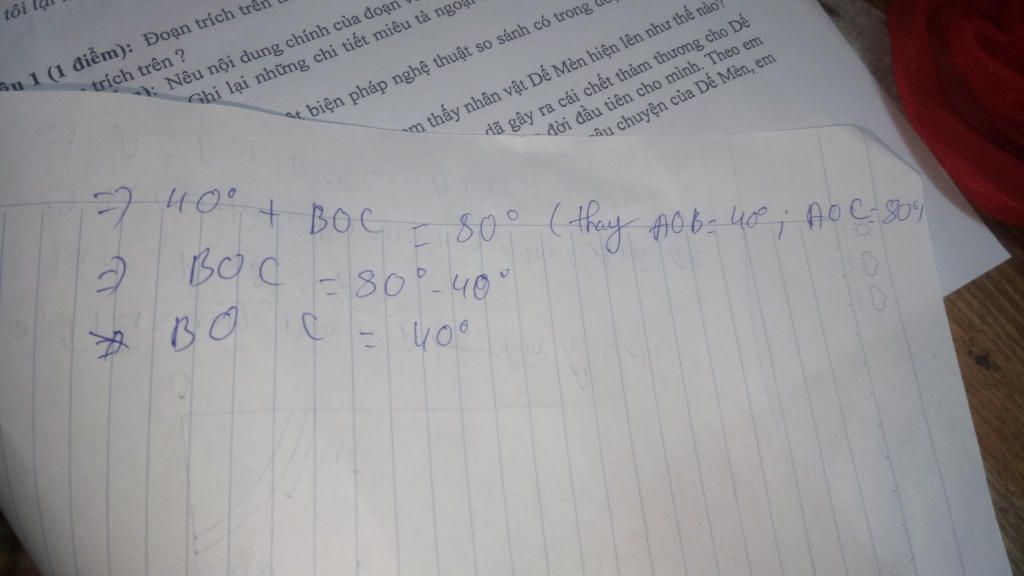 tôi lại
Câu 1 (1 điểm): Đoạn trích trên
trích trên ?
Nêu nội dung chính của đoạn
Ghi lại những chi tiết miêu tả ngoại
biện pháp nghệ thuật so sánh có trong
em thấy nhân vật Dế Mèn hiện lên như thế nào?
đã gây ra cái chết thảm thương cho Dế
đời đầu tiên cho mình. Theo em
câu chuyện của Dế Mèn, em
=> 40° + BOC = 80° (thay AOB = 40°; AOC = 80°)
=> BOC = 80° - 40°
=> BO C = 40°